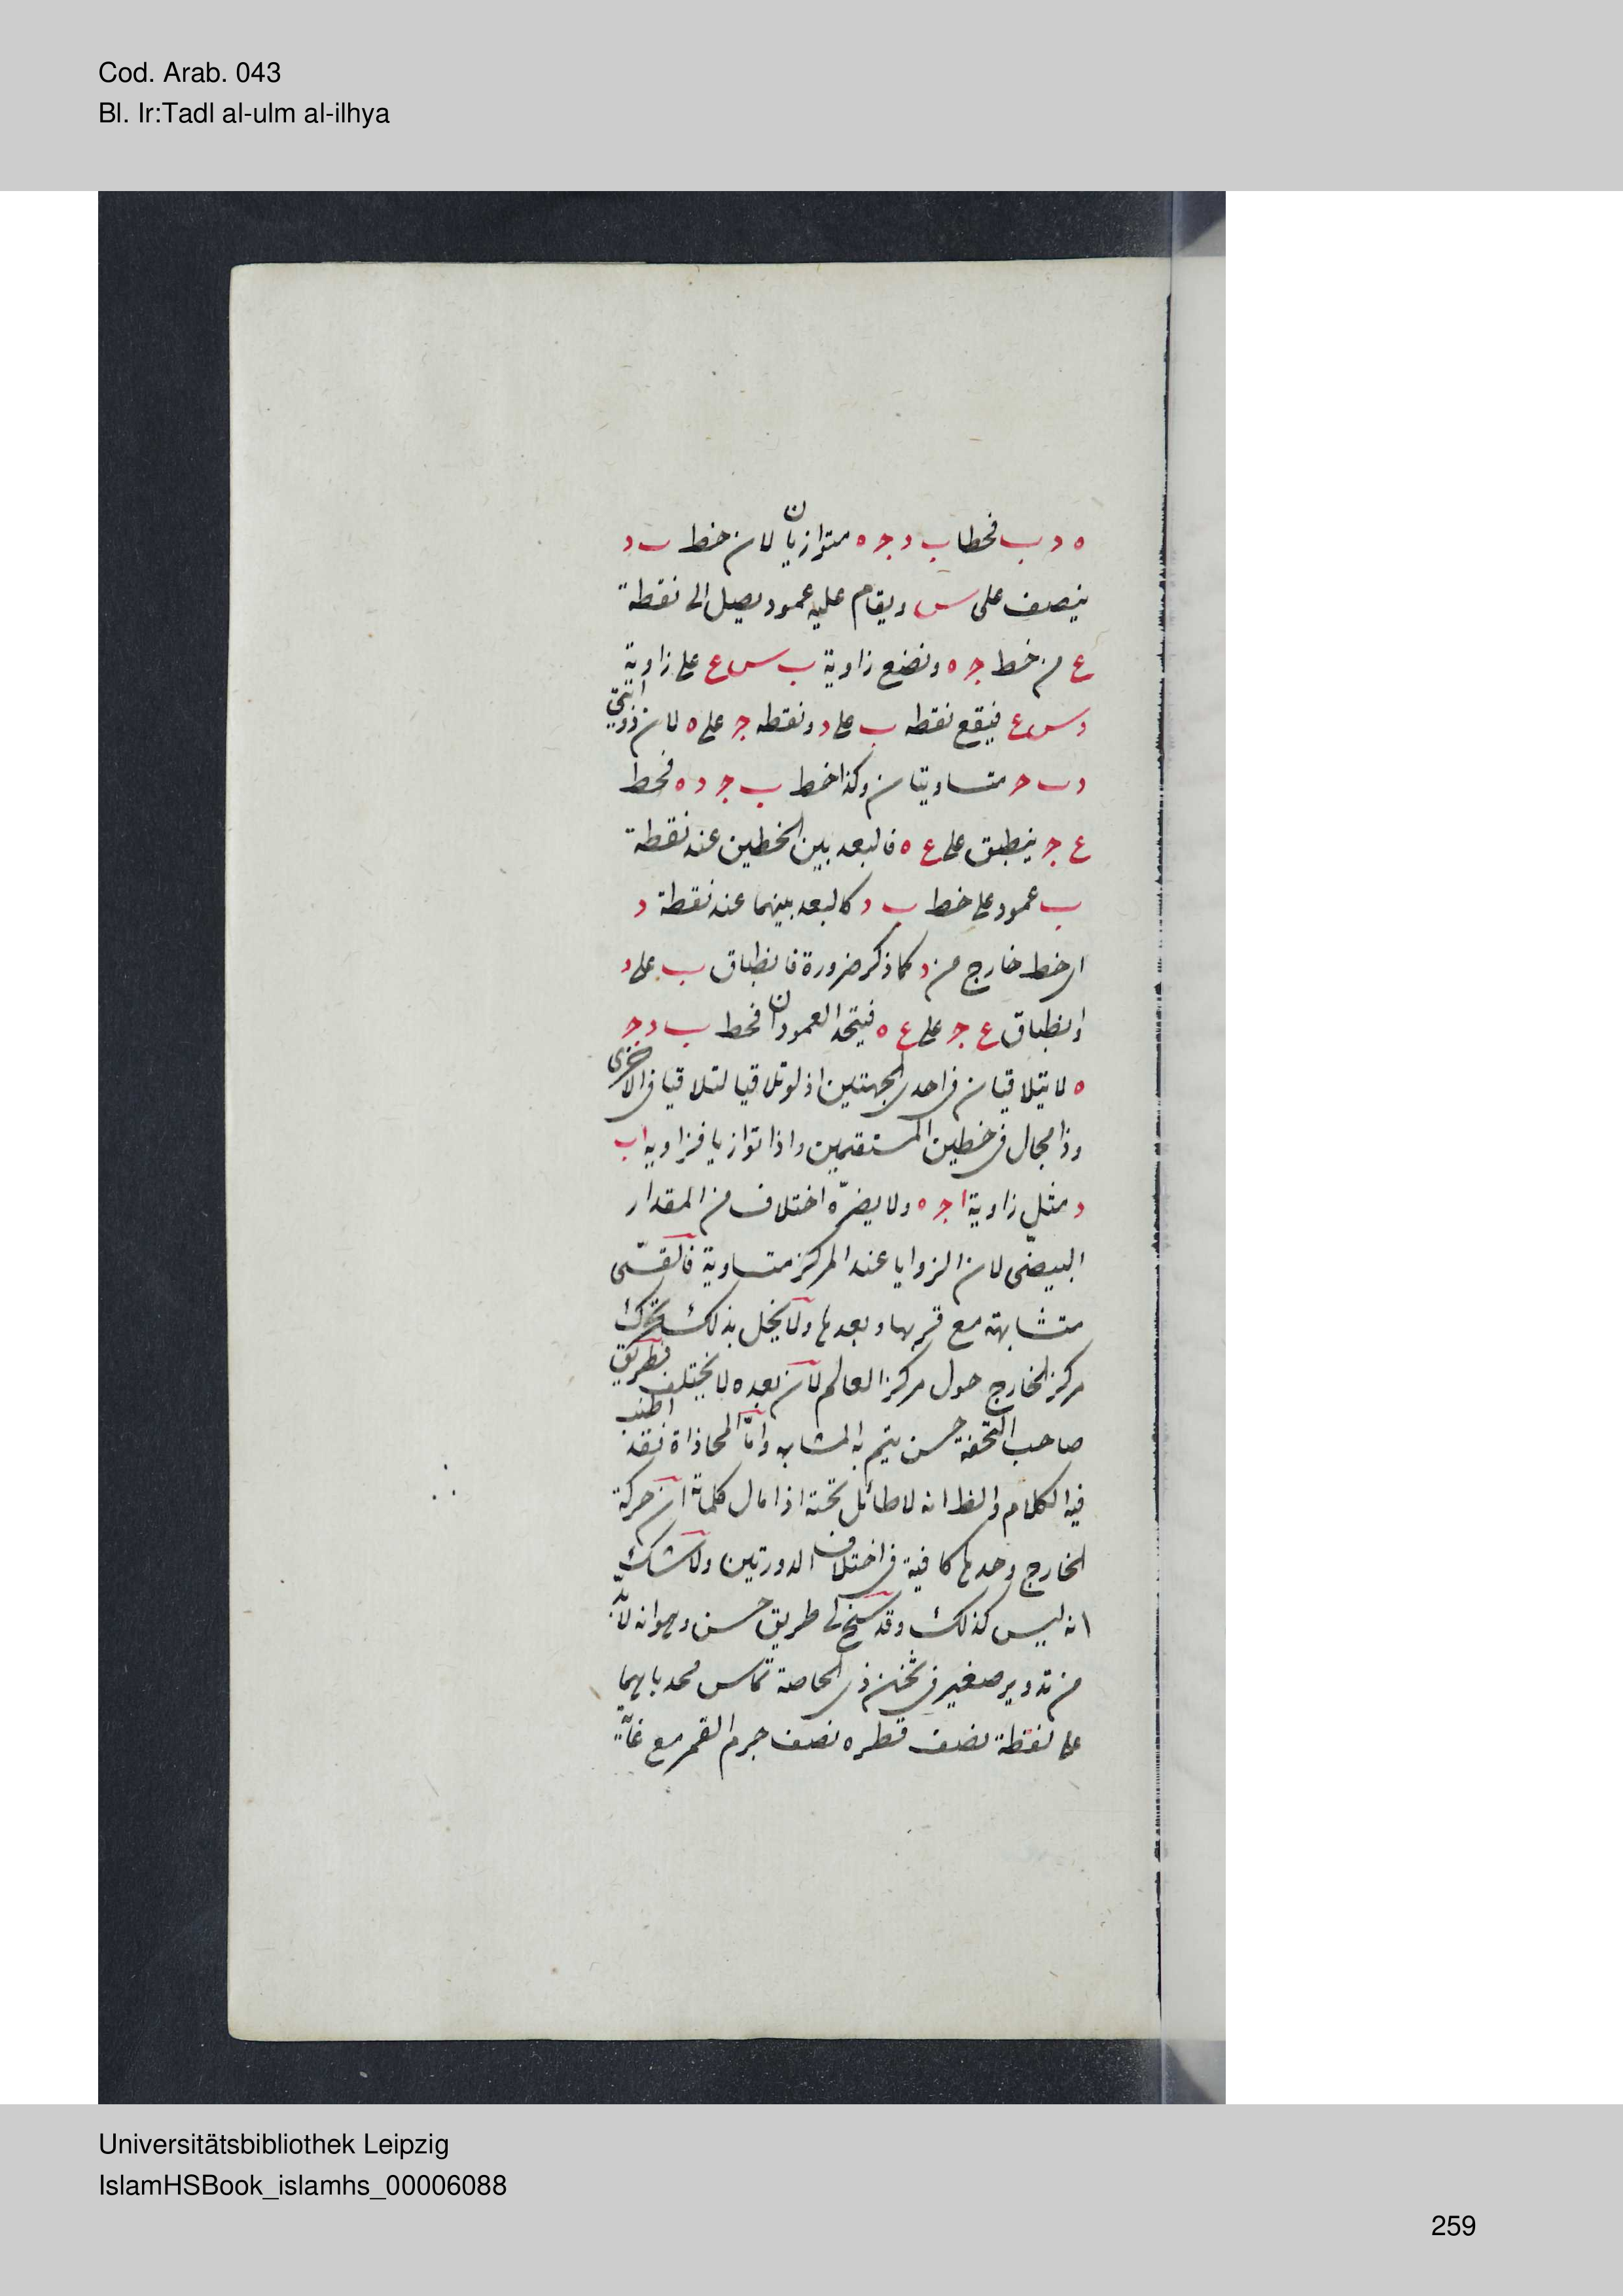 Cod. Arab. 043
Bl. Ir:Tadl al-ulm al-ilhya
ه د ب فخطا ب د جـ ه متوازيان لان خط ب د
ينصف على س ويقام عليه عمود يصل الى نقطة
ع من خط جـ ه ونضع زاوية ب س ع على زاوية
د س ع فيقع نقطه ب على د ونقطه جـ على ه لان
د ب جـ متساويتان وكذا خط ب جـ د ه فخط
ع جـ ينطبق على ع ه فالبعد بين الخطين عند نقطة
ب عمود على خط ب د كالبعد بينهما عند نقطة د
اى خط خارج من د كما ذكر ضرورة فانطباق ب على د
وانطباق ع جـ على ع ه فيتحد العمودان فخط ب د جـ
ه لا يتلاقيان فى احدى الجهتين اذ لو تلاقيا لتلاقيا فى الاخرى
وذا محال فى خطين المستقيمين واذا توازيا فزاويه ا ب
د مثل زاوية ا جـ ه ولا يضره اختلاف من المقدار
البيضى لان الزوايا عند المركز متساوية فالقسى
متشابهة مع قربها وبعدها ولا يخل بذلك تحرك
مركز الخارج حول مركز العالم لان بعده لا يختلف فطريق
صاحب التحفة حسن يتم به المشابه واما المحاذاة فقد اطنب
فيه الكلام والظ انه لا طائل تحته اذا مال كلماته ان حركة
الخارج وحدها كافية فى اختلاف الدورتين ولا شك
انه ليس كذلك وقد سنح لى طريق حسن وهو انه لا بد
من تدوير صغير فى ثخن ذى الحاصة تماس محدباهما
على نقطة نصف قطره نصف جرم القمر مع غاية
Universitätsbibliothek Leipzig
IslamHSBook_islamhs_00006088
259